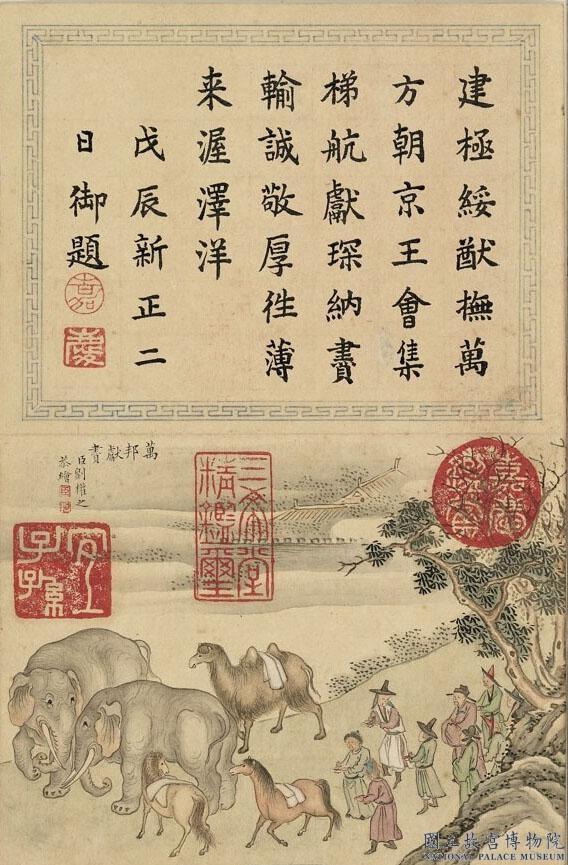 建極綏猷撫萬
方朝京王會集
梯航獻琛納賮
輸誠敬厚徃薄
来渥澤洋
戊辰新正二
日御題
嘉
慶
萬邦獻賮
臣劉權之
恭繪
三希堂
精鑑璽
宜
子孫
國立故宮博物院
NATIONAL PALACE MUSEUM